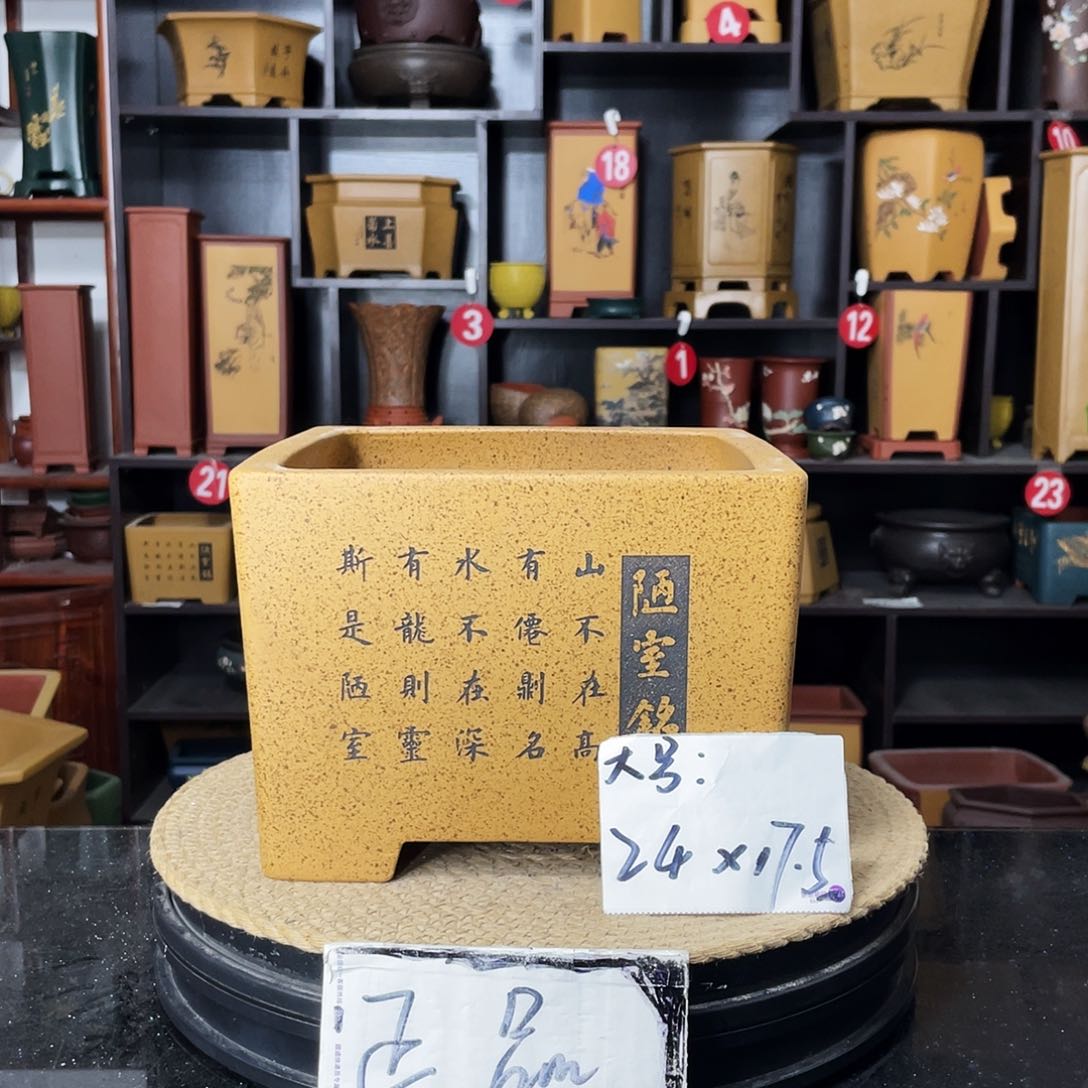 4
18
10
上善
若水
3
12
1
21
23
陋室銘
陋室銘
山不在高
有僊𠟭名
水不在深
有龍則靈
斯是陋室
大号:
24×17.5
正品